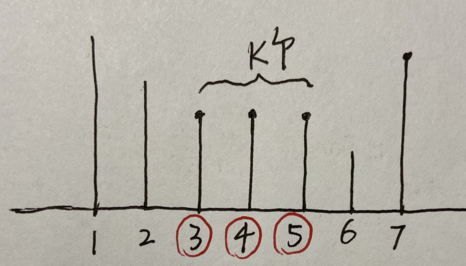 K中
1 2 3 4 5 6 7